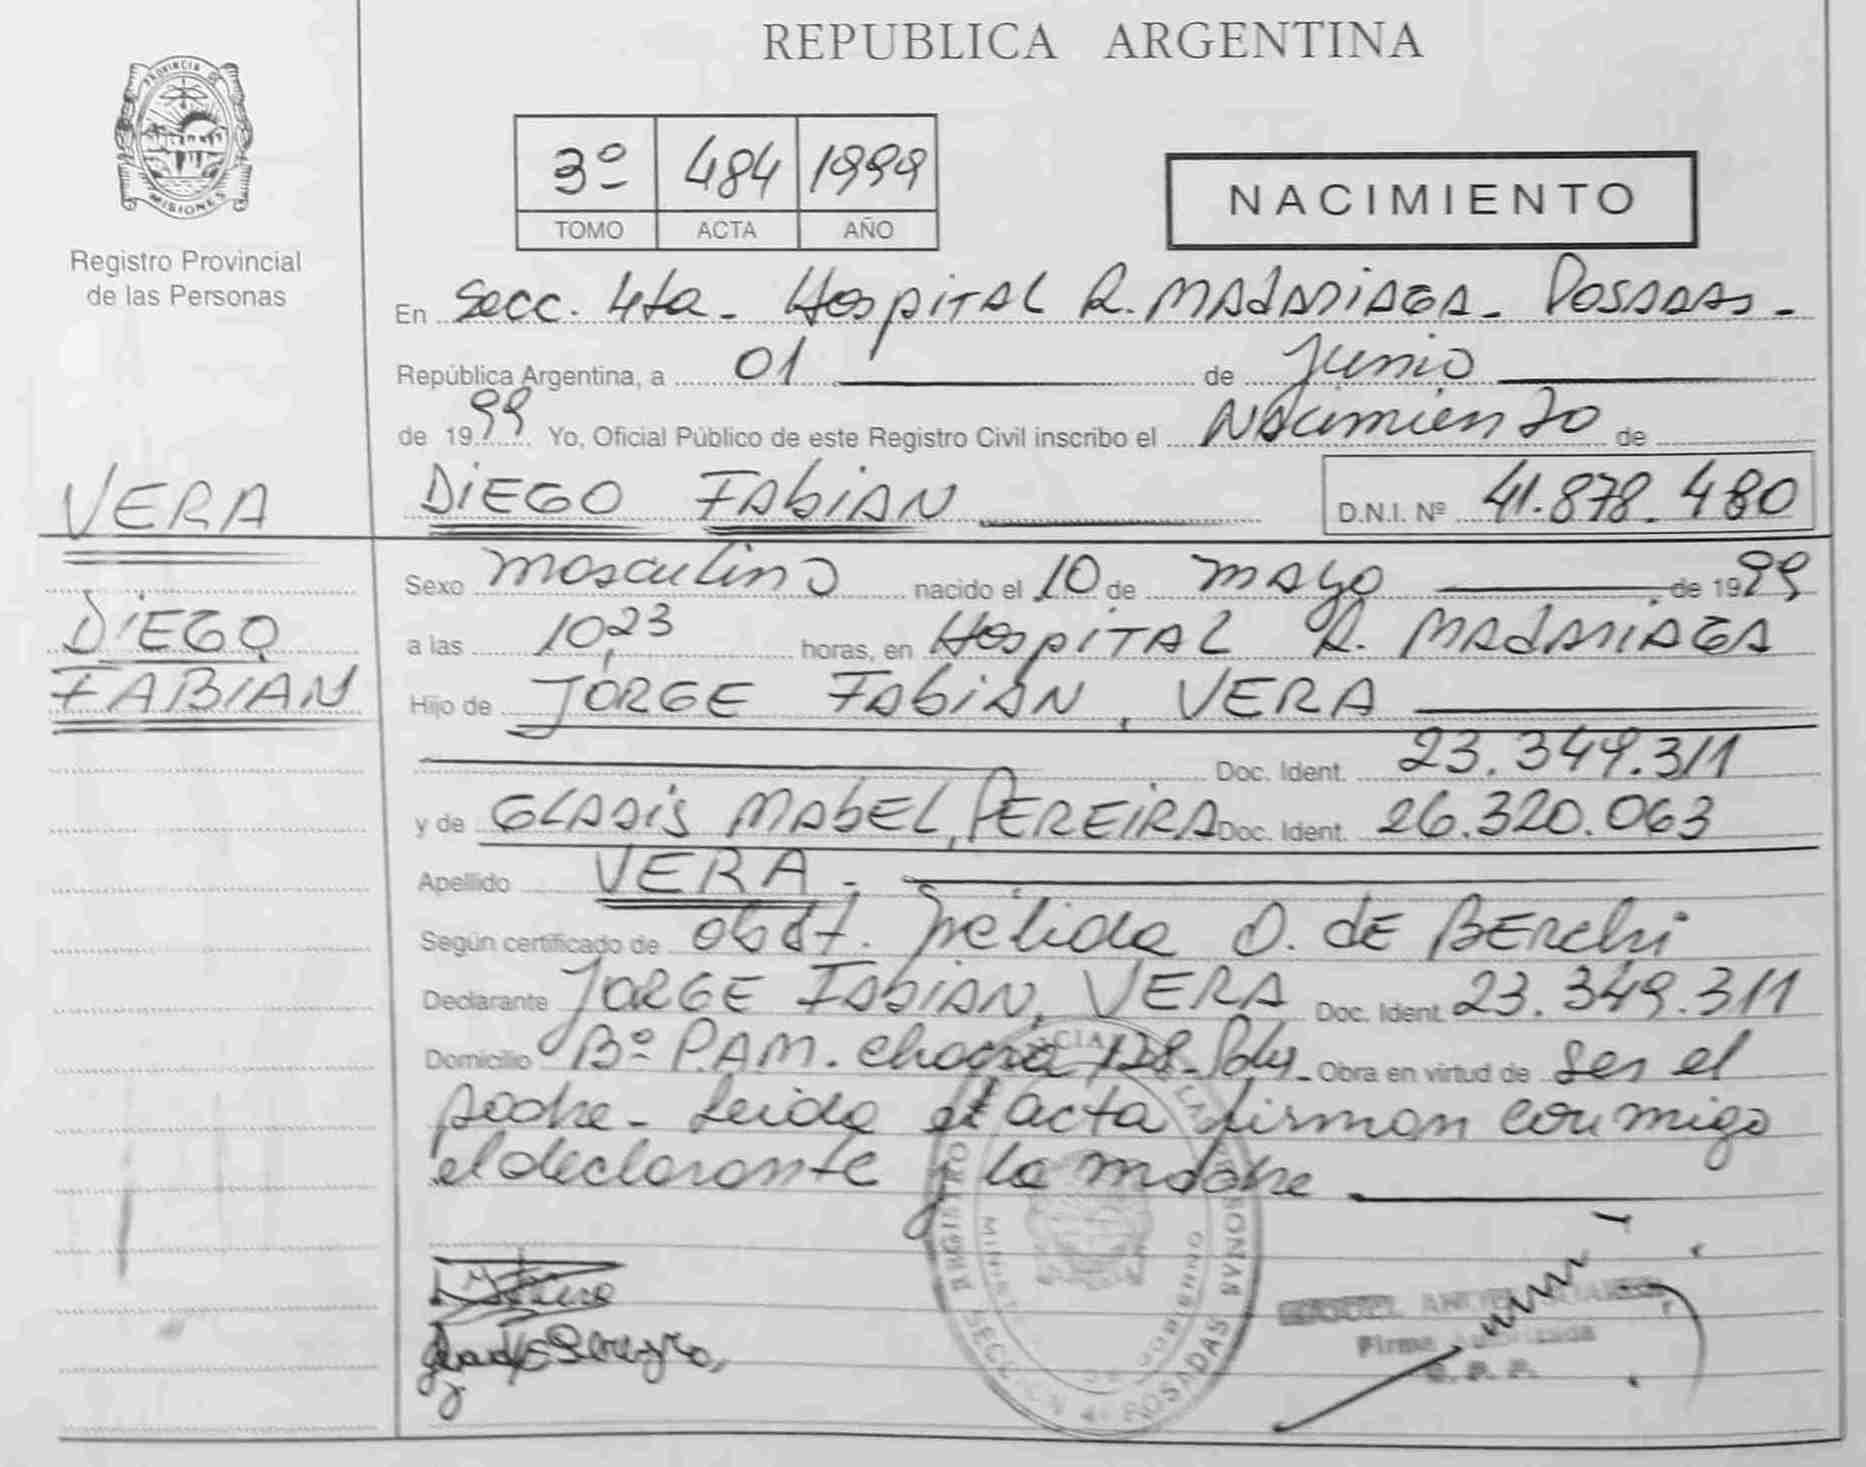 REPUBLICA ARGENTINA
PROVINCIA DE
MISIONES
Registro Provincial
de las Personas
3º 484 1999
TOMO ACTA AÑO
NACIMIENTO
En Secc. 4ta. Hospital R. MADARIAGA - POSADAS -
República Argentina, a 01 de Junio
de 1999 Yo, Oficial Público de este Registro Civil inscribo el Nacimiento de
VERA
DIEGO FABIAN D.N.I. Nº 41.878.480
Sexo masculino nacido el 10 de mayo de 1999
DIEGO
FABIAN
a las 10,23 horas, en Hospital R. MADARIAGA
Hijo de JORGE FABIAN, VERA
Doc. Ident. 23.349.311
y de GLADIS MABEL, PEREIRA Doc. Ident. 26.320.063
Apellido VERA -
Según certificado de obst. D. de Berchi
Declarante JORGE FABIAN, VERA Doc. Ident. 23.349.311
Domicilio Bº P.AM. chacra 128 - Pdas - Obra en virtud de ser el
padre - Leida el acta firman conmigo
el declarante y la madre
REGISTRO LAS PERSONAS
MINIST DE GOBIERNO
SECCION 4ª POSADAS
Firma Autorizada